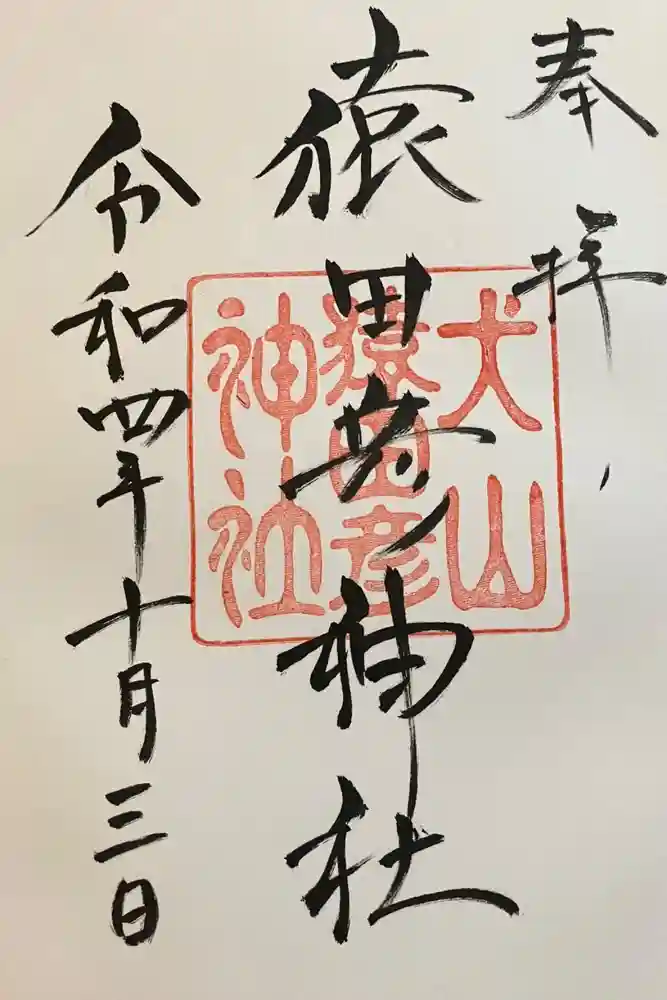 奉拝
猿田彦神社
令和四年十月三日
犬山
猿田彦
神社